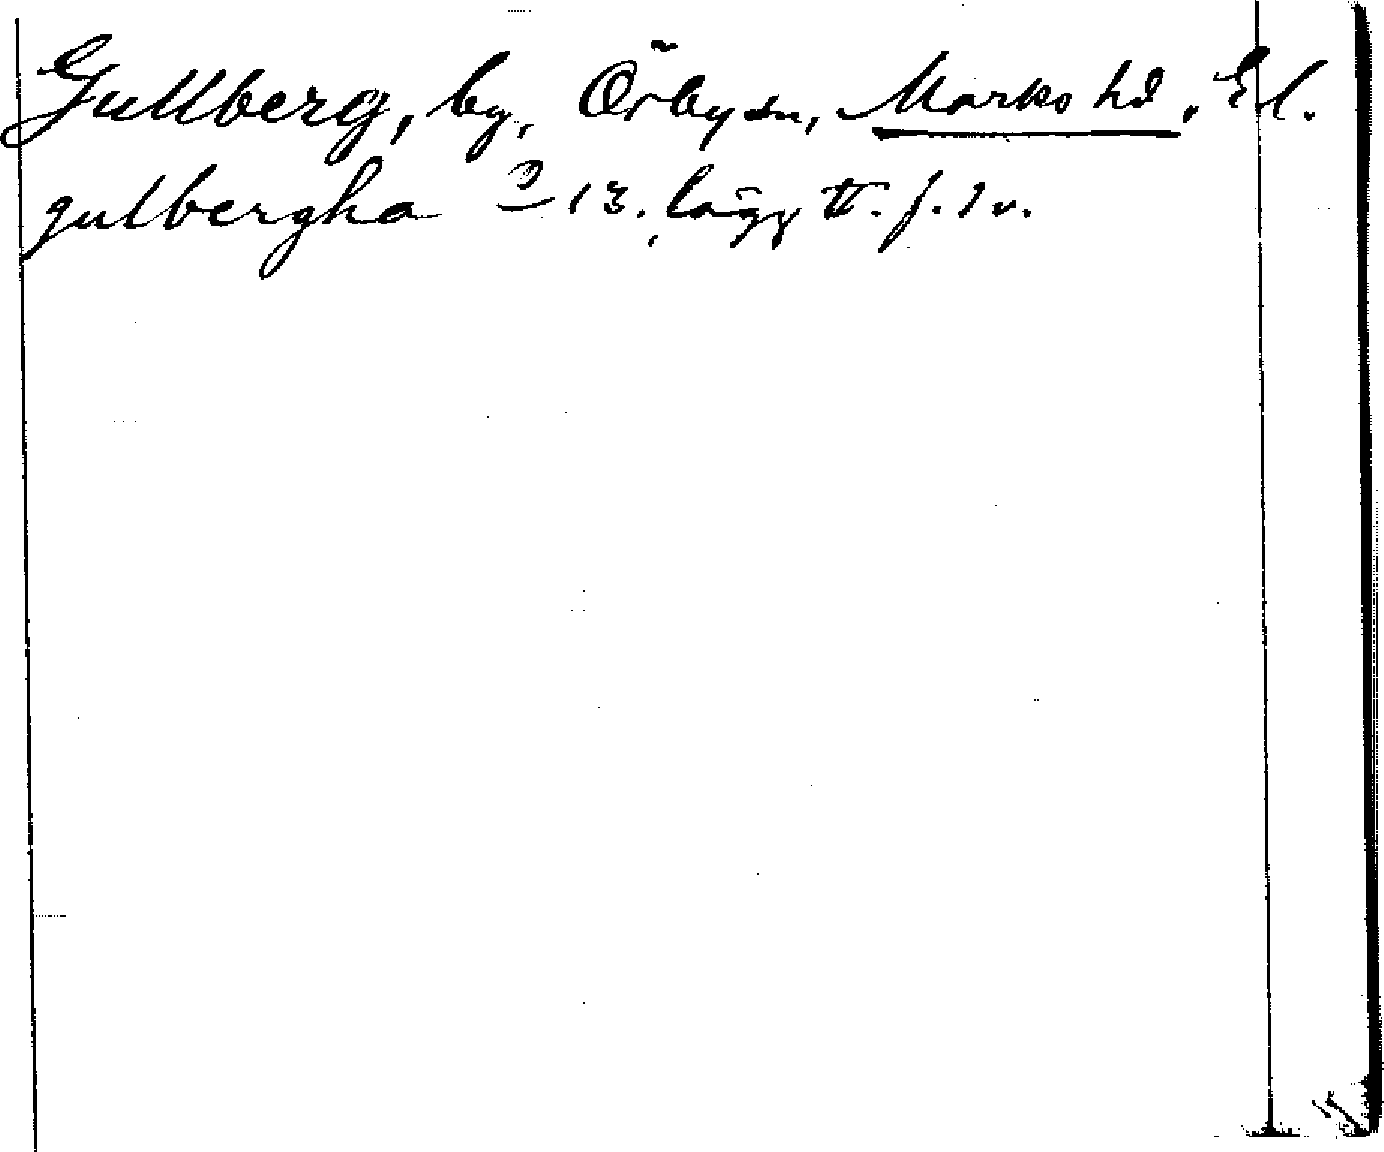 Gullberg, by, Örby sn, Marks hd, El.
gulbergha D 13. lägg II. f. 1 v.